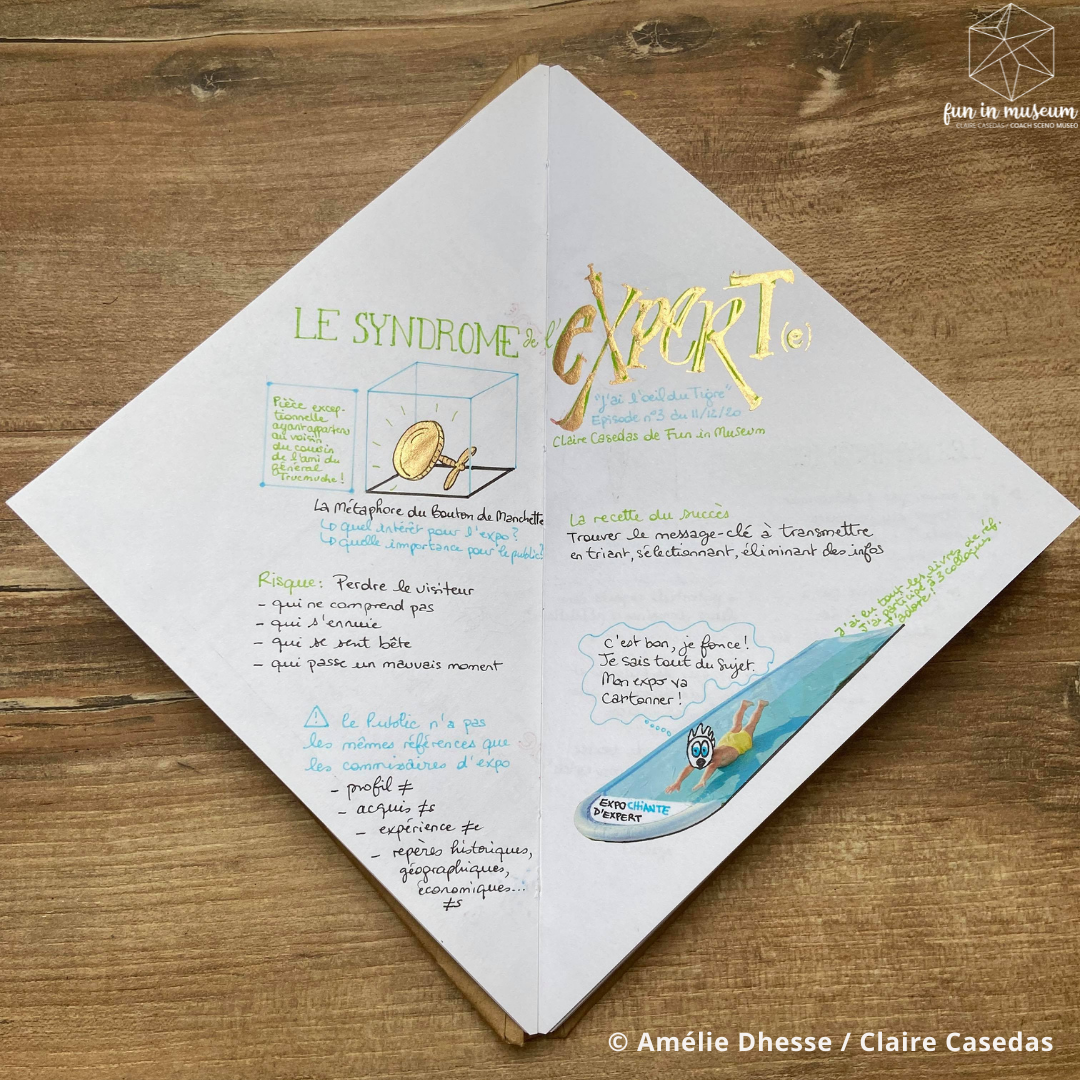 fun in museum
CLAIRE CASEDAS / COACH SCENO MUSEO
LE SYNDROME de l'eXPERT(e)
"J'ai l'œil du Tigre"
Episode n°3 du 11/12/20
Claire Casedas de Fun in Museum
Pièce excep-
tionnelle
ayant appartenu
au voisin
du cousin
de l'ami du
général
Trucmuche !
La Métaphore du Bouton de Manchette
↳ quel intérêt pour l'expo ?
↳ quelle importance pour le public ?
Risque : Perdre le visiteur
- qui ne comprend pas
- qui s'ennuie
- qui se sent bête
- qui passe un mauvais moment
⚠ le Public n'a pas
les mêmes références que
les commissaires d'expo
- profil ≠
- acquis ≠s
- expérience ≠e
- repères historiques,
géographiques,
économiques...
≠s
La recette du succès
Trouver le message-clé à transmettre
en triant, sélectionnant, éliminant des infos
J'ai lu tous les livres de réf.
J'ai participé à 3 colloques
J'adore !
C'est bon, je fonce !
Je sais tout du sujet.
Mon expo va
cartonner !
EXPO CHiANTE
D'EXPERT
© Amélie Dhesse / Claire Casedas